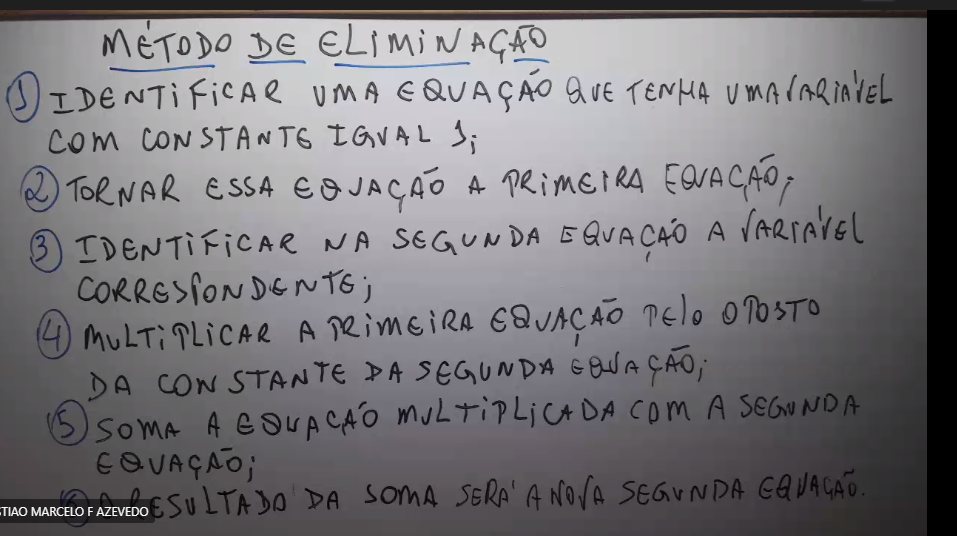 MÉTODO DE ELIMINAÇÃO
1 IDENTIFICAR UMA EQUAÇÃO QUE TENHA UMA VARIÁVEL
COM CONSTANTE IGUAL 1;
2 TORNAR ESSA EQUAÇÃO A PRIMEIRA EQUAÇÃO;
3 IDENTIFICAR NA SEGUNDA EQUAÇÃO A VARIÁVEL
CORRESPONDENTE;
4 MULTIPLICAR A PRIMEIRA EQUAÇÃO PELO OPOSTO
DA CONSTANTE DA SEGUNDA EQUAÇÃO;
5 SOMA A EQUAÇÃO MULTIPLICADA COM A SEGUNDA
EQUAÇÃO;
6 O RESULTADO DA SOMA SERÁ A NOVA SEGUNDA EQUAÇÃO.
STIAO MARCELO F AZEVEDO